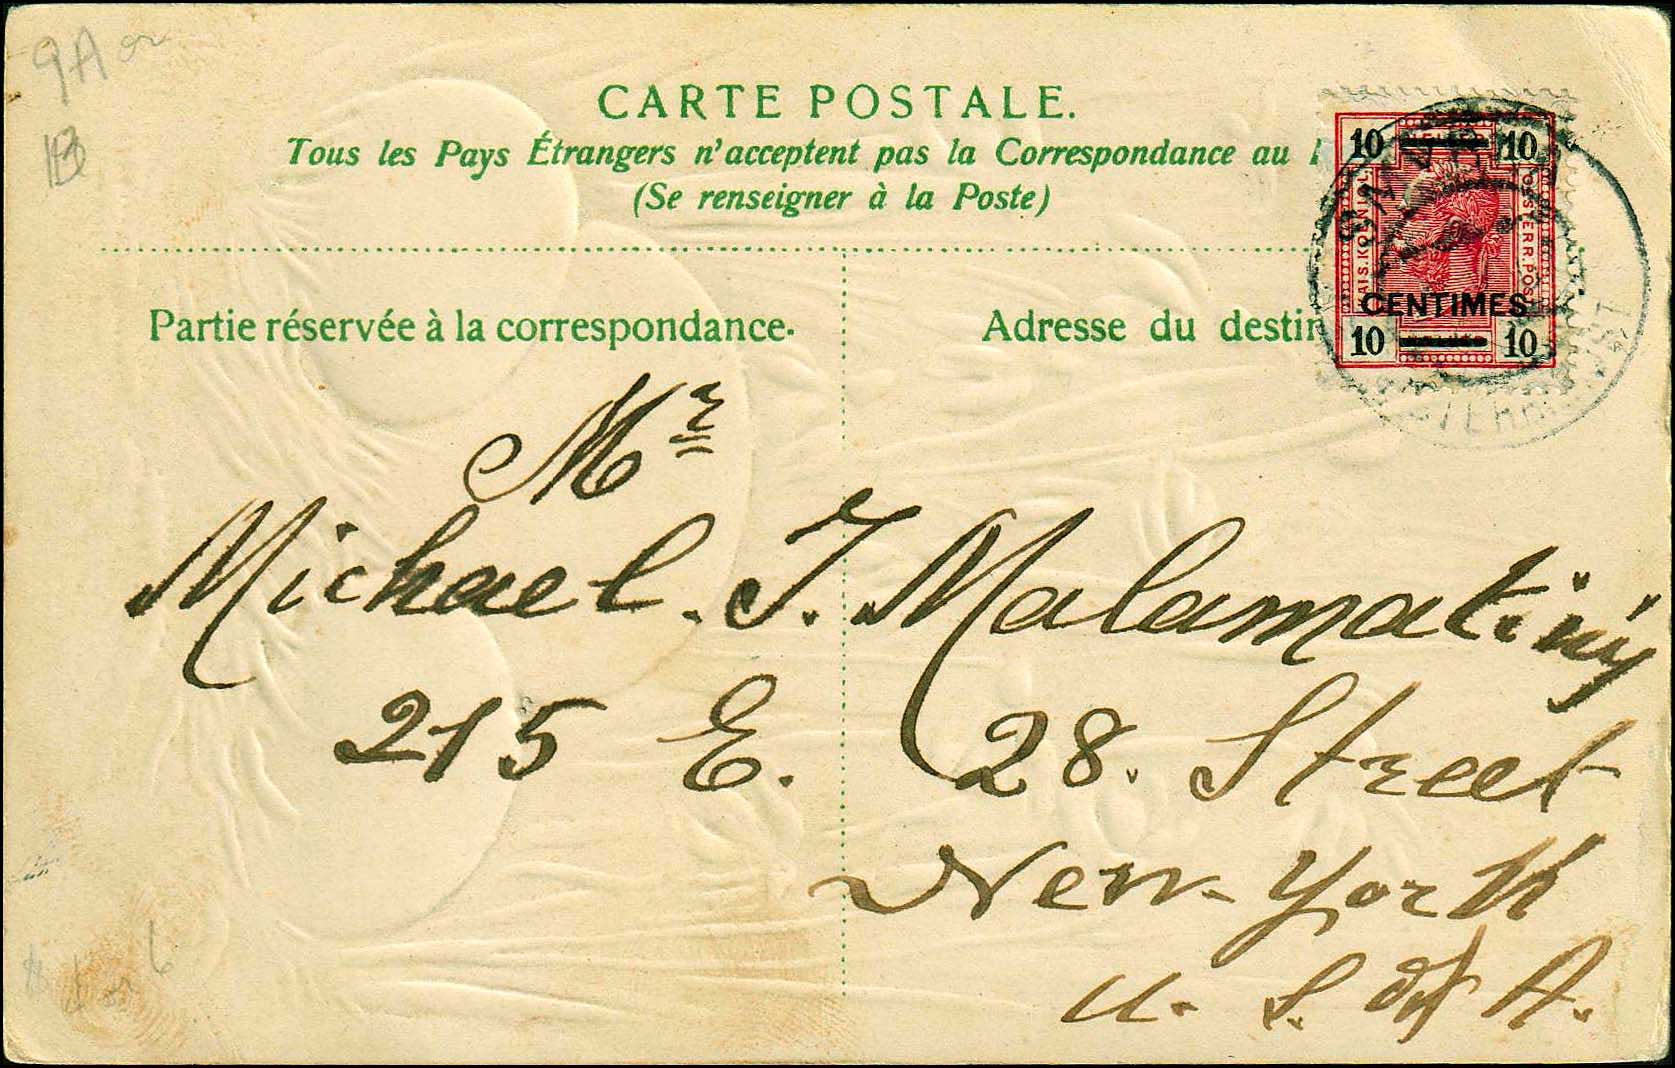 9A or
B
CARTE POSTALE.
Tous les Pays Étrangers n'acceptent pas la Correspondance au
(Se renseigner à la Poste)
Partie réservée à la correspondance.
Adresse du destin
10 10
OSTERR. POST
CENTIMES
10 10
Mr
Michael. J. Malamatiniy
215 E. 28. Street
New-York
U. S. of A.